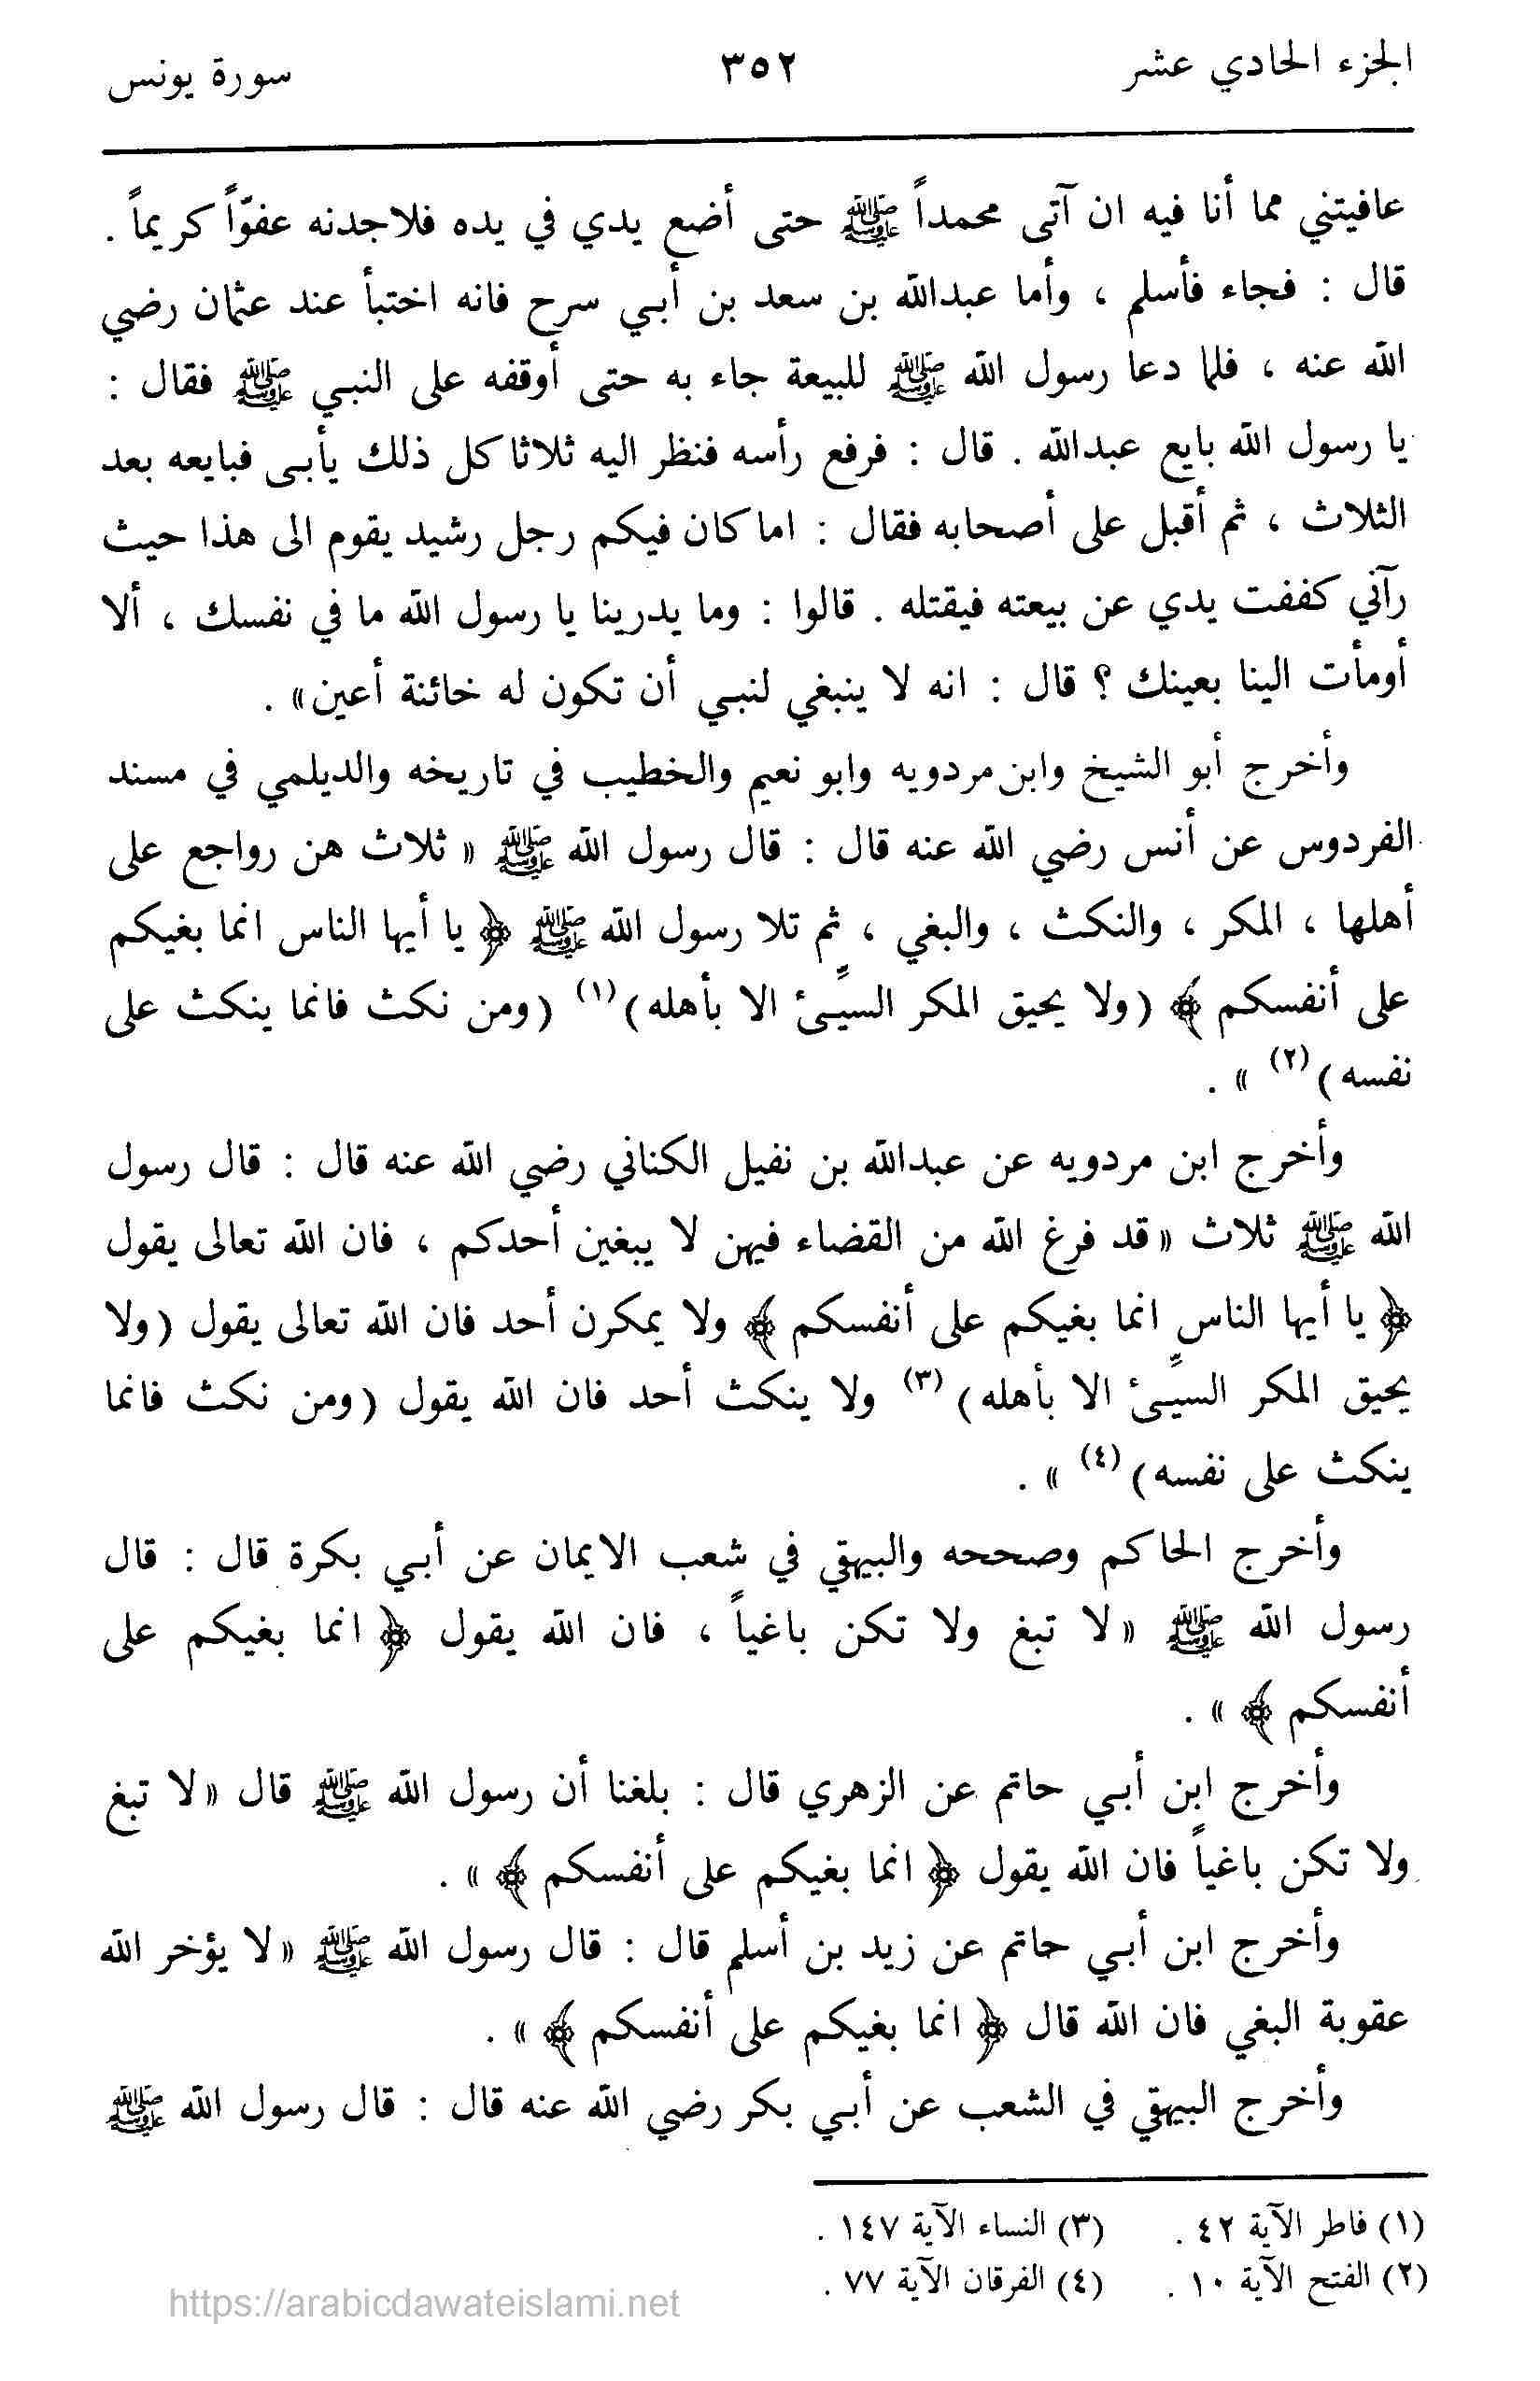 الجزء الحادي عشر ٣٥٢ سورة يونس
عافيتني مما أنا فيه ان آتى محمداً ﷺ حتى أضع يدي في يده فلاجدنه عفوّاً كريماً .
قال : فجاء فأسلم ، وأما عبدالله بن سعد بن أبي سرح فانه اختبأ عند عثمان رضي
الله عنه ، فلما دعا رسول الله ﷺ للبيعة جاء به حتى أوقفه على النبي ﷺ فقال :
يا رسول الله بايع عبدالله . قال : فرفع رأسه فنظر اليه ثلاثا كل ذلك يأبى فبايعه بعد
الثلاث ، ثم أقبل على أصحابه فقال : اما كان فيكم رجل رشيد يقوم الى هذا حيث
رآني كففت يدي عن بيعته فيقتله . قالوا : وما يدرينا يا رسول الله ما في نفسك ، ألا
أومأت الينا بعينك ؟ قال : انه لا ينبغي لنبي أن تكون له خائنة أعين » .
وأخرج أبو الشيخ وابن مردويه وابو نعيم والخطيب في تاريخه والديلمي في مسند
الفردوس عن أنس رضي الله عنه قال : قال رسول الله ﷺ « ثلاث هن رواجع على
أهلها ، المكر ، والنكث ، والبغي ، ثم تلا رسول الله ﷺ ﴿ يا أيها الناس انما بغيكم
على أنفسكم ﴾ (ولا يحيق المكر السيِّئ الا بأهله) (١) (ومن نكث فانما ينكث على
نفسه) (٢) » .
وأخرج ابن مردويه عن عبدالله بن نفيل الكناني رضي الله عنه قال : قال رسول
الله ﷺ ثلاث « قد فرغ الله من القضاء فيهن لا يبغين أحدكم ، فان الله تعالى يقول
﴿ يا أيها الناس انما بغيكم على أنفسكم ﴾ ولا يمكرن أحد فان الله تعالى يقول (ولا
يحيق المكر السيِّئ الا بأهله) (٣) ولا ينكث أحد فان الله يقول (ومن نكث فانما
ينكث على نفسه) (٤) » .
وأخرج الحاكم وصححه والبيهقي في شعب الايمان عن أبي بكرة قال : قال
رسول الله ﷺ « لا تبغ ولا تكن باغياً ، فان الله يقول ﴿ انما بغيكم على
أنفسكم ﴾ » .
وأخرج ابن أبي حاتم عن الزهري قال : بلغنا أن رسول الله ﷺ قال « لا تبغ
ولا تكن باغياً فان الله يقول ﴿ انما بغيكم على أنفسكم ﴾ » .
وأخرج ابن أبي حاتم عن زيد بن أسلم قال : قال رسول الله ﷺ « لا يؤخر الله
عقوبة البغي فان الله قال ﴿ انما بغيكم على أنفسكم ﴾ » .
وأخرج البيهقي في الشعب عن أبي بكر رضي الله عنه قال : قال رسول الله ﷺ
(١) فاطر الآية ٤٢ . (٣) النساء الآية ١٤٧ .
(٢) الفتح الآية ١٠ . (٤) الفرقان الآية ٧٧ .
https://arabicdawateislami.net